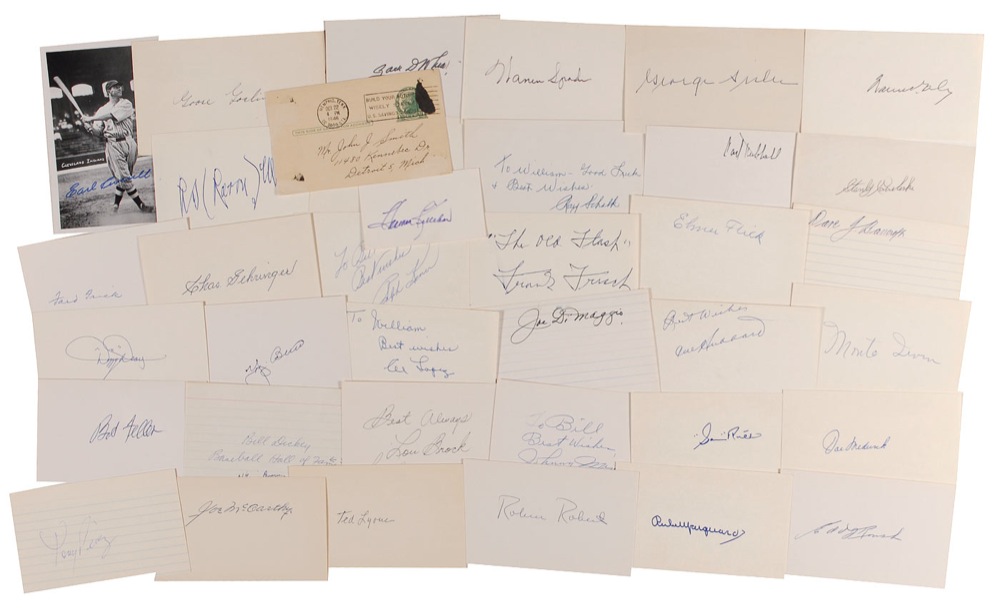 CLEVELAND INDIANS
Earl Averill
Goose Goslin
Warren Spahn
George Sisler
BUILD YOUR FUTURE
WEEKLY
U.S. SAVINGS
Mr. John J. Smith
11430 Kennebec Dr.
Detroit 5 Mich
Red (Rolfe)
To William - Good Luck
& Best Wishes
Ray Schalk
Carl Hubbell
Stanley Coveleski
To
Best wishes
Ralph Kiner
"The Old Flash"
Frank Frisch
Elmer Flick
Dave J Bancroft
Ford Frick
Chas. Gehringer
"Dizzy" Dean
Yogi Berra
To William
Best wishes
Al Lopez
Joe DiMaggio
Best Wishes
Cal Hubbard
Monte Irvin
Bob Feller
Bill Dickey
Baseball Hall of Fame
Best Always
Lou Brock
To Bill
Best Wishes
Johnny Mize
"Sam" Rice
Joe Medwick
Joe McCarthy
Ted Lyons
Robin Roberts
Rube Marquard
Edd J Roush